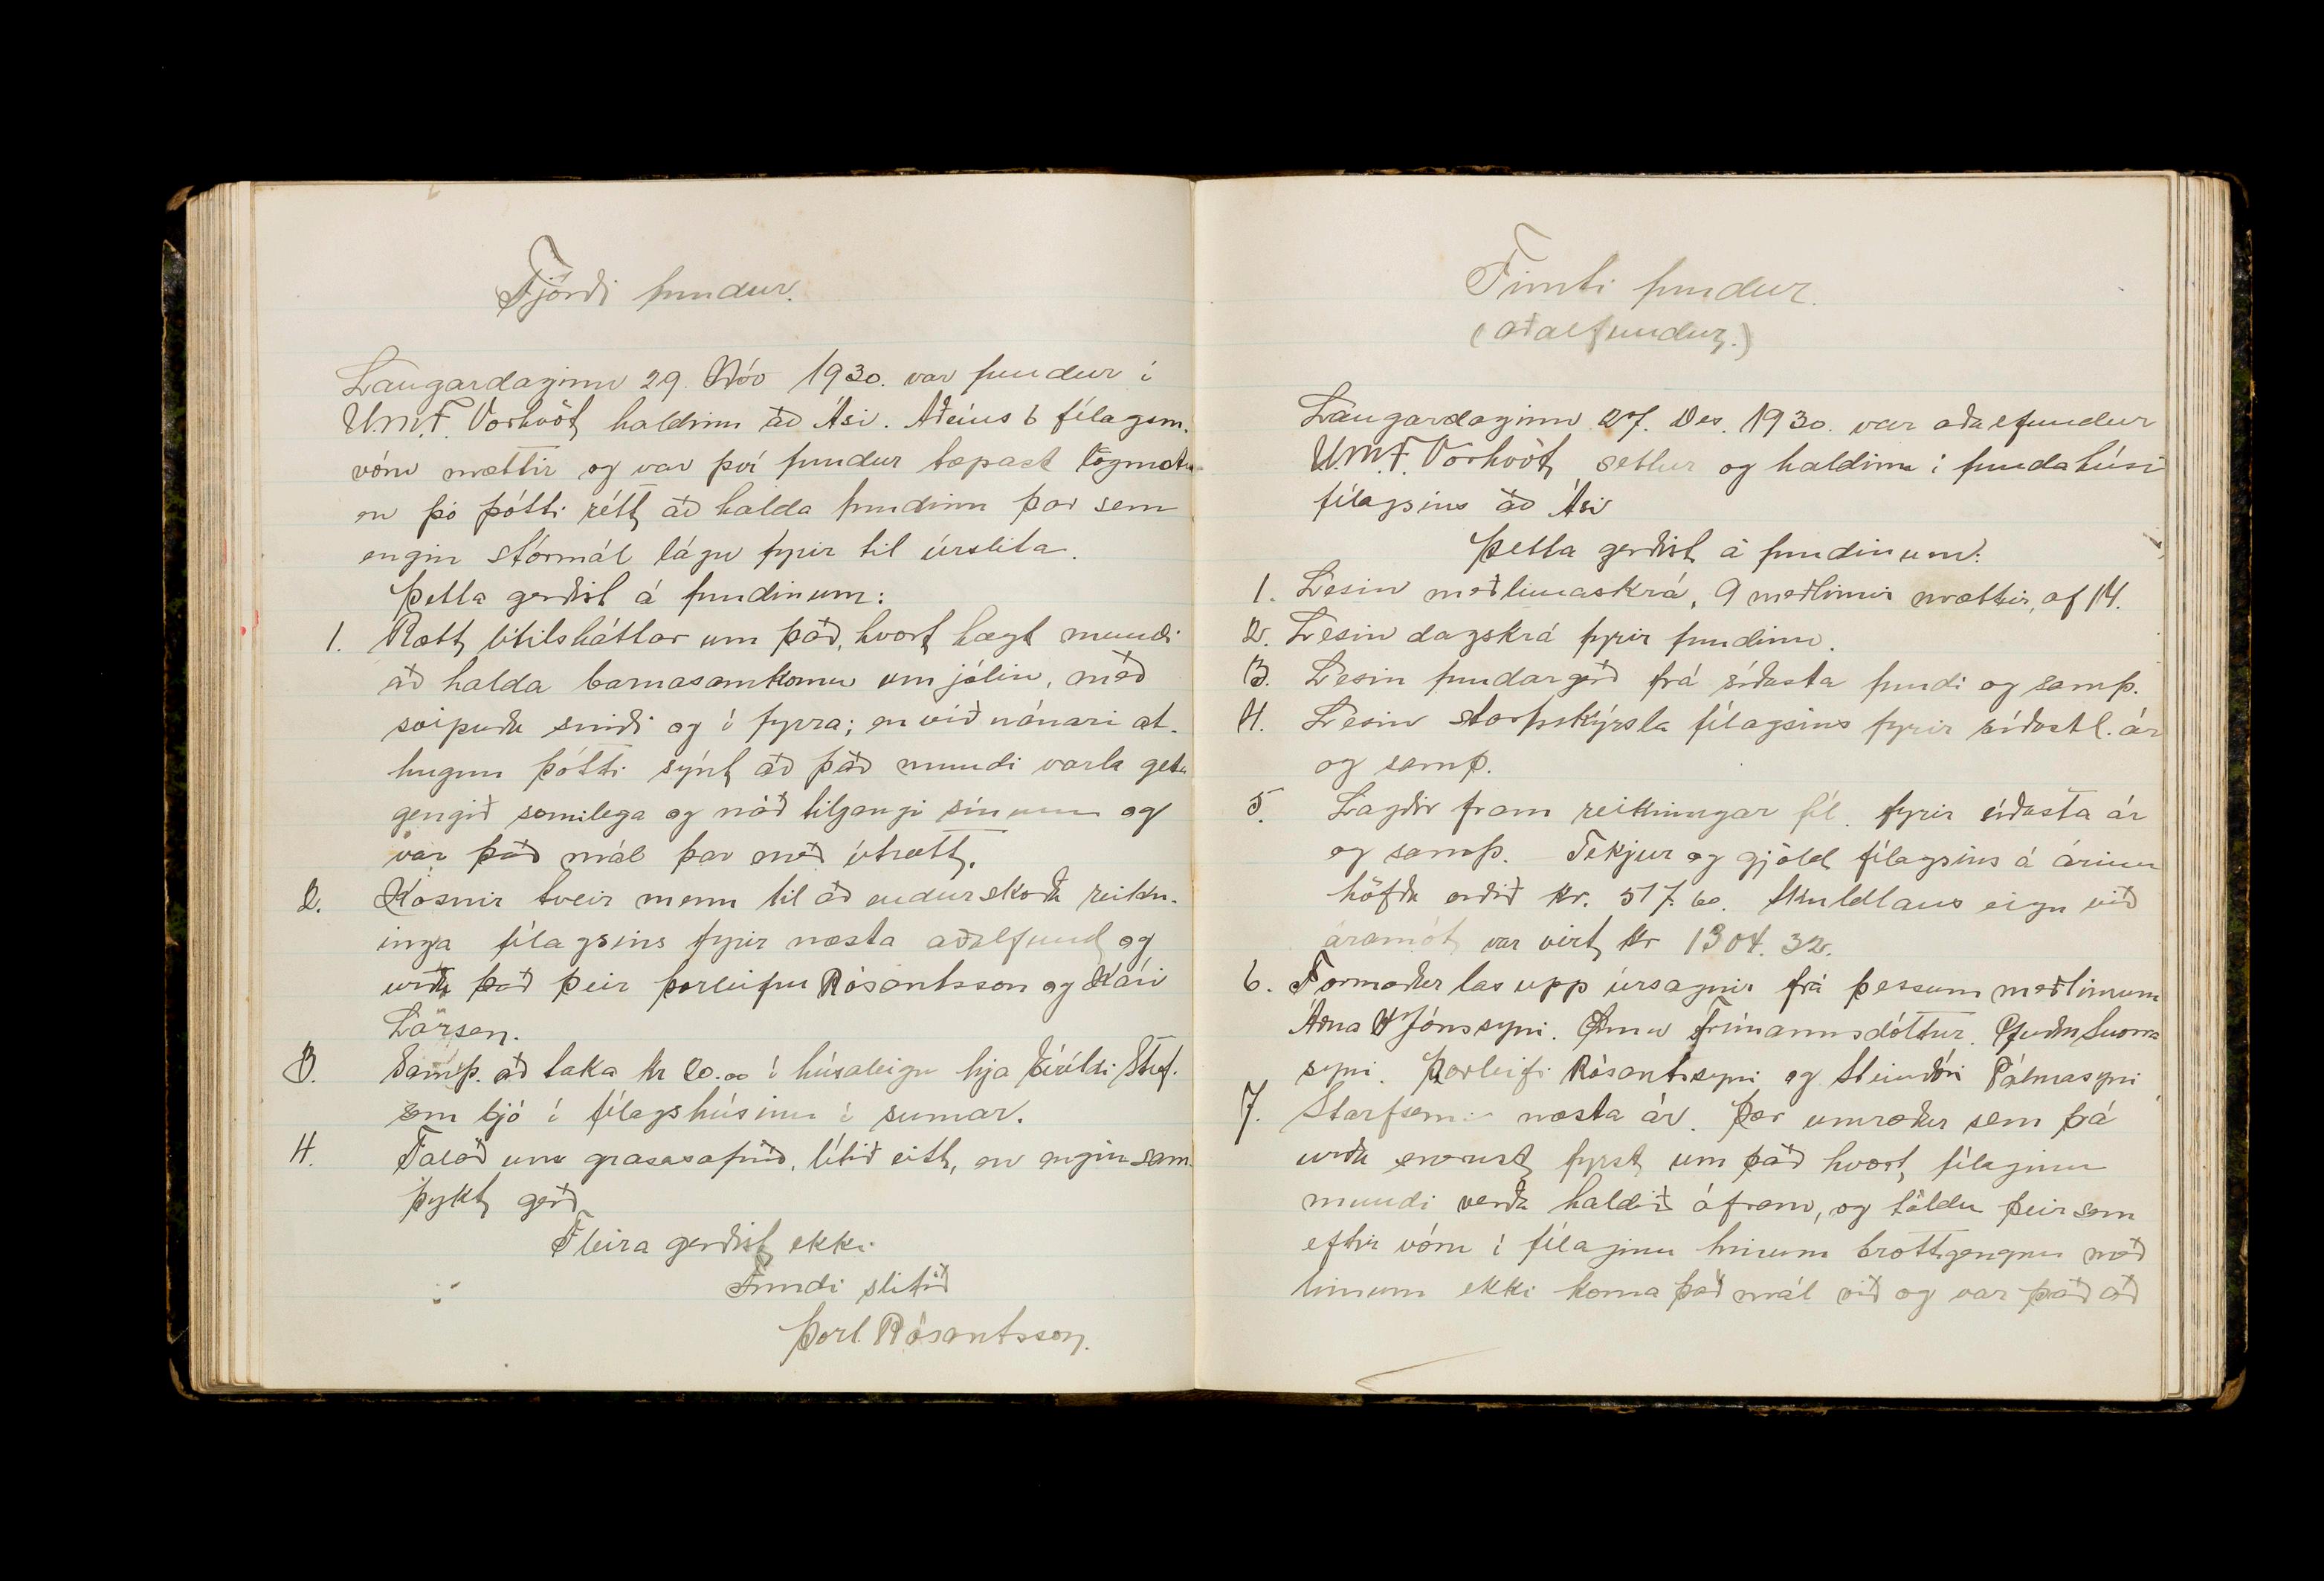 Fjórði fundur.
Laugardaginn 29. Nóv 1930. var fundur í
U.M.F. Vorhvöt haldinn að Ási. Aðeins 6 félagsm.
vóru mættir og var því fundur tæpast lögmætur
en þó þótti rétt að halda fundinn þar sem
engin stórmál lágu fyrir til úrslita.
Þetta gerðist á fundinum:
1. Rætt lítilsháttar um það, hvort hægt mundi
að halda barnasamkomu um jólin, með
svipuðu sniði og í fyrra; en við nánari at-
hugun þótti sýnt að það mundi varla geta
gengið sæmilega og náð tilgangi sínum og
var það mál þar með útrætt.
2. Kosnir tveir menn til að endurskoða reikn-
inga félagsins fyrir næsta aðalfund og
urðu það þeir Þorleifur Rósantsson og Kári
Larsen.
3. Samþ. að taka kr 20.00 í húsaleigu hja Stef.
sem bjó í félagshúsinu í sumar.
4. Talað um grasasafnið, lítið eitt, en engin sam-
þykt gerð
Fleira gerðist ekki.
Fundi slitið
Þorl. Rósantsson.
Fimti fundur.
(aðalfundur.)
Laugardaginn 27. Des. 1930. var aðalfundur
U.M.F. Vorhvöt settur og haldinn í fundahúsi
félagsins að Ási
Þetta gerðist á fundinum:
1. Lesin meðlimaskrá, 9 meðlimir mættir, af 14.
2. Lesin dagskrá fyrir fundinn.
3. Lesin fundargerð frá síðasta fundi og samþ.
4. Lesin starfskýrsla félagsins fyrir síðastl. ár
og samþ.
5. Lagðir fram reikningar fél. fyrir síðasta ár
og samþ. Tekjur og gjöld félagsins á árinu
höfðu orðið kr. 517.60. Skuldlaus eign við
áramót var virt kr 1304.32.
6. Formaður las upp úrsagnir frá þessum meðlimum
Árna Jónssyni. Önnu Frímannsdóttur. Snorra
syni. Þorleifi Rósantssyni og Steindóri Pálmasyni
7. Starfsemi næsta ár. Þær umræður sem þá
urðu snerust fyrst um það hvort félaginu
mundi verða haldið áfram, og töldu þeir sem
eftir vóru í félaginu hinum brottgengnu með
limum ekki koma það mál við og var það að